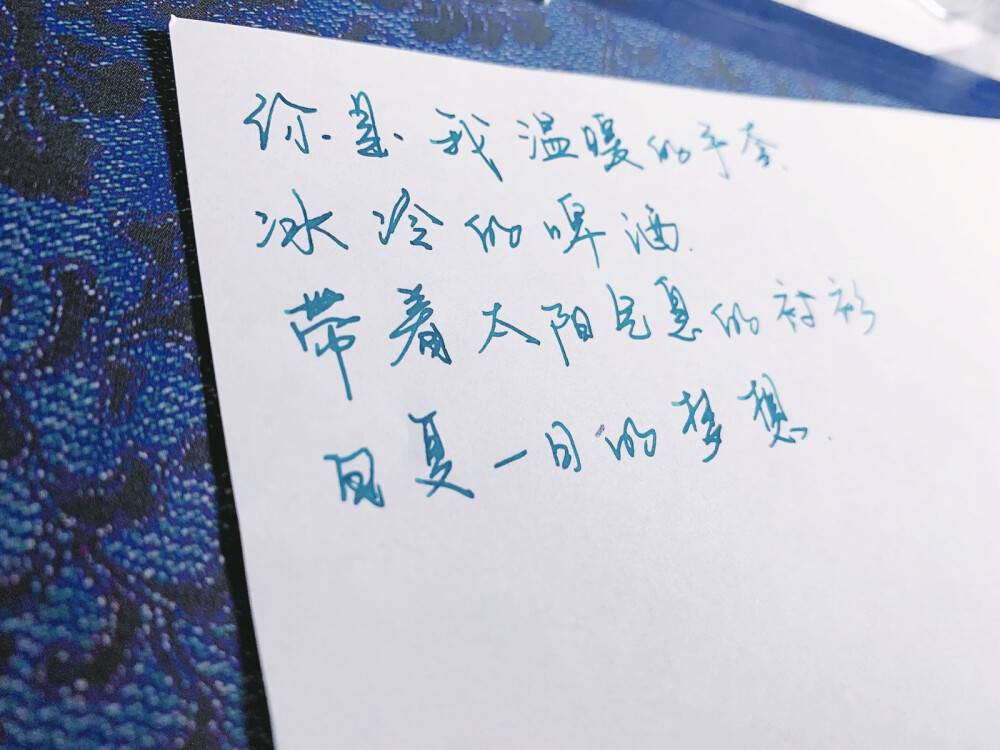 你是我温暖的手套.
冰冷的啤酒.
带着太阳气息的衬衫
日复一日的梦想.